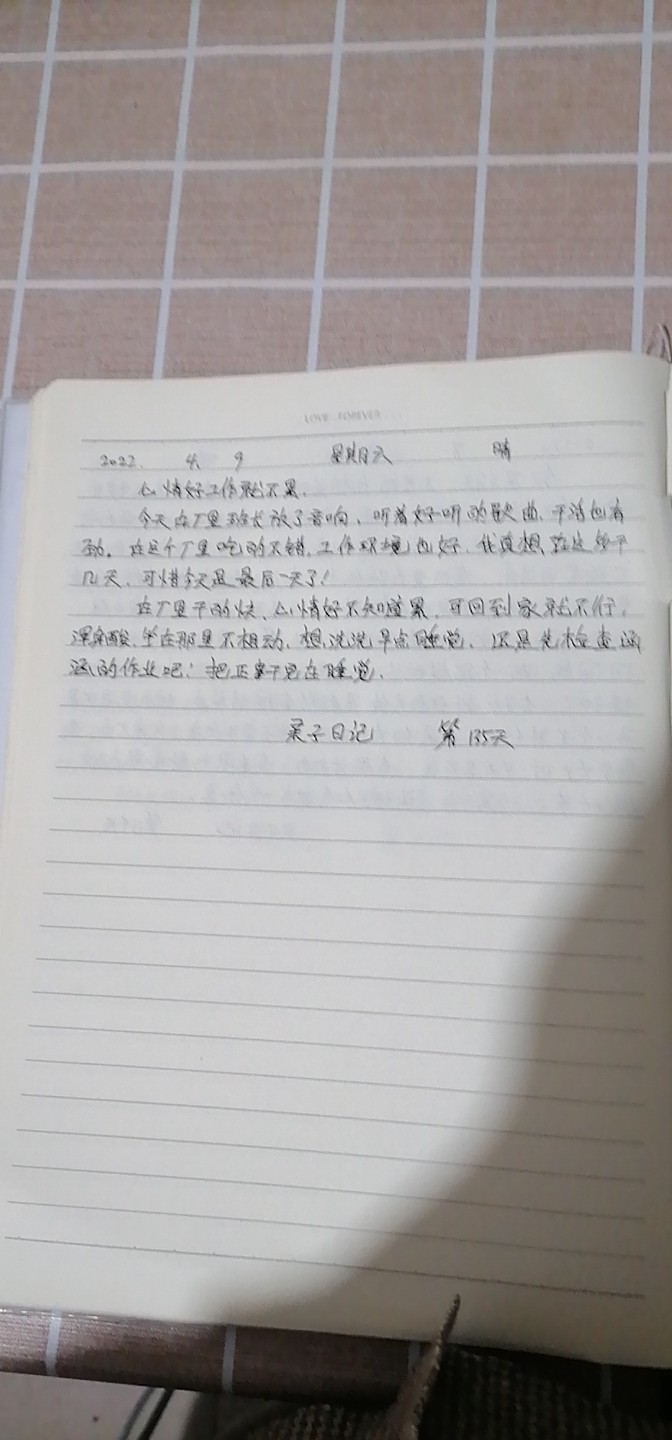 LOVE FOREVER
2022. 4. 9 星期六 晴
心情好工作就不累.
今天在厂里班长放了音响, 听着好听的歌曲, 干活也有
劲。在这个厂里吃的不错, 工作环境也好, 我真想在这多干
几天, 可惜今天是最后一天了!
在厂里干的快、心情好不知道累, 可回到家就不行,
浑身酸, 坐在那里不想动, 想洗洗早点睡觉. 还是先检查涵
涵的作业吧! 把正事干完在睡觉.
日记 第135天